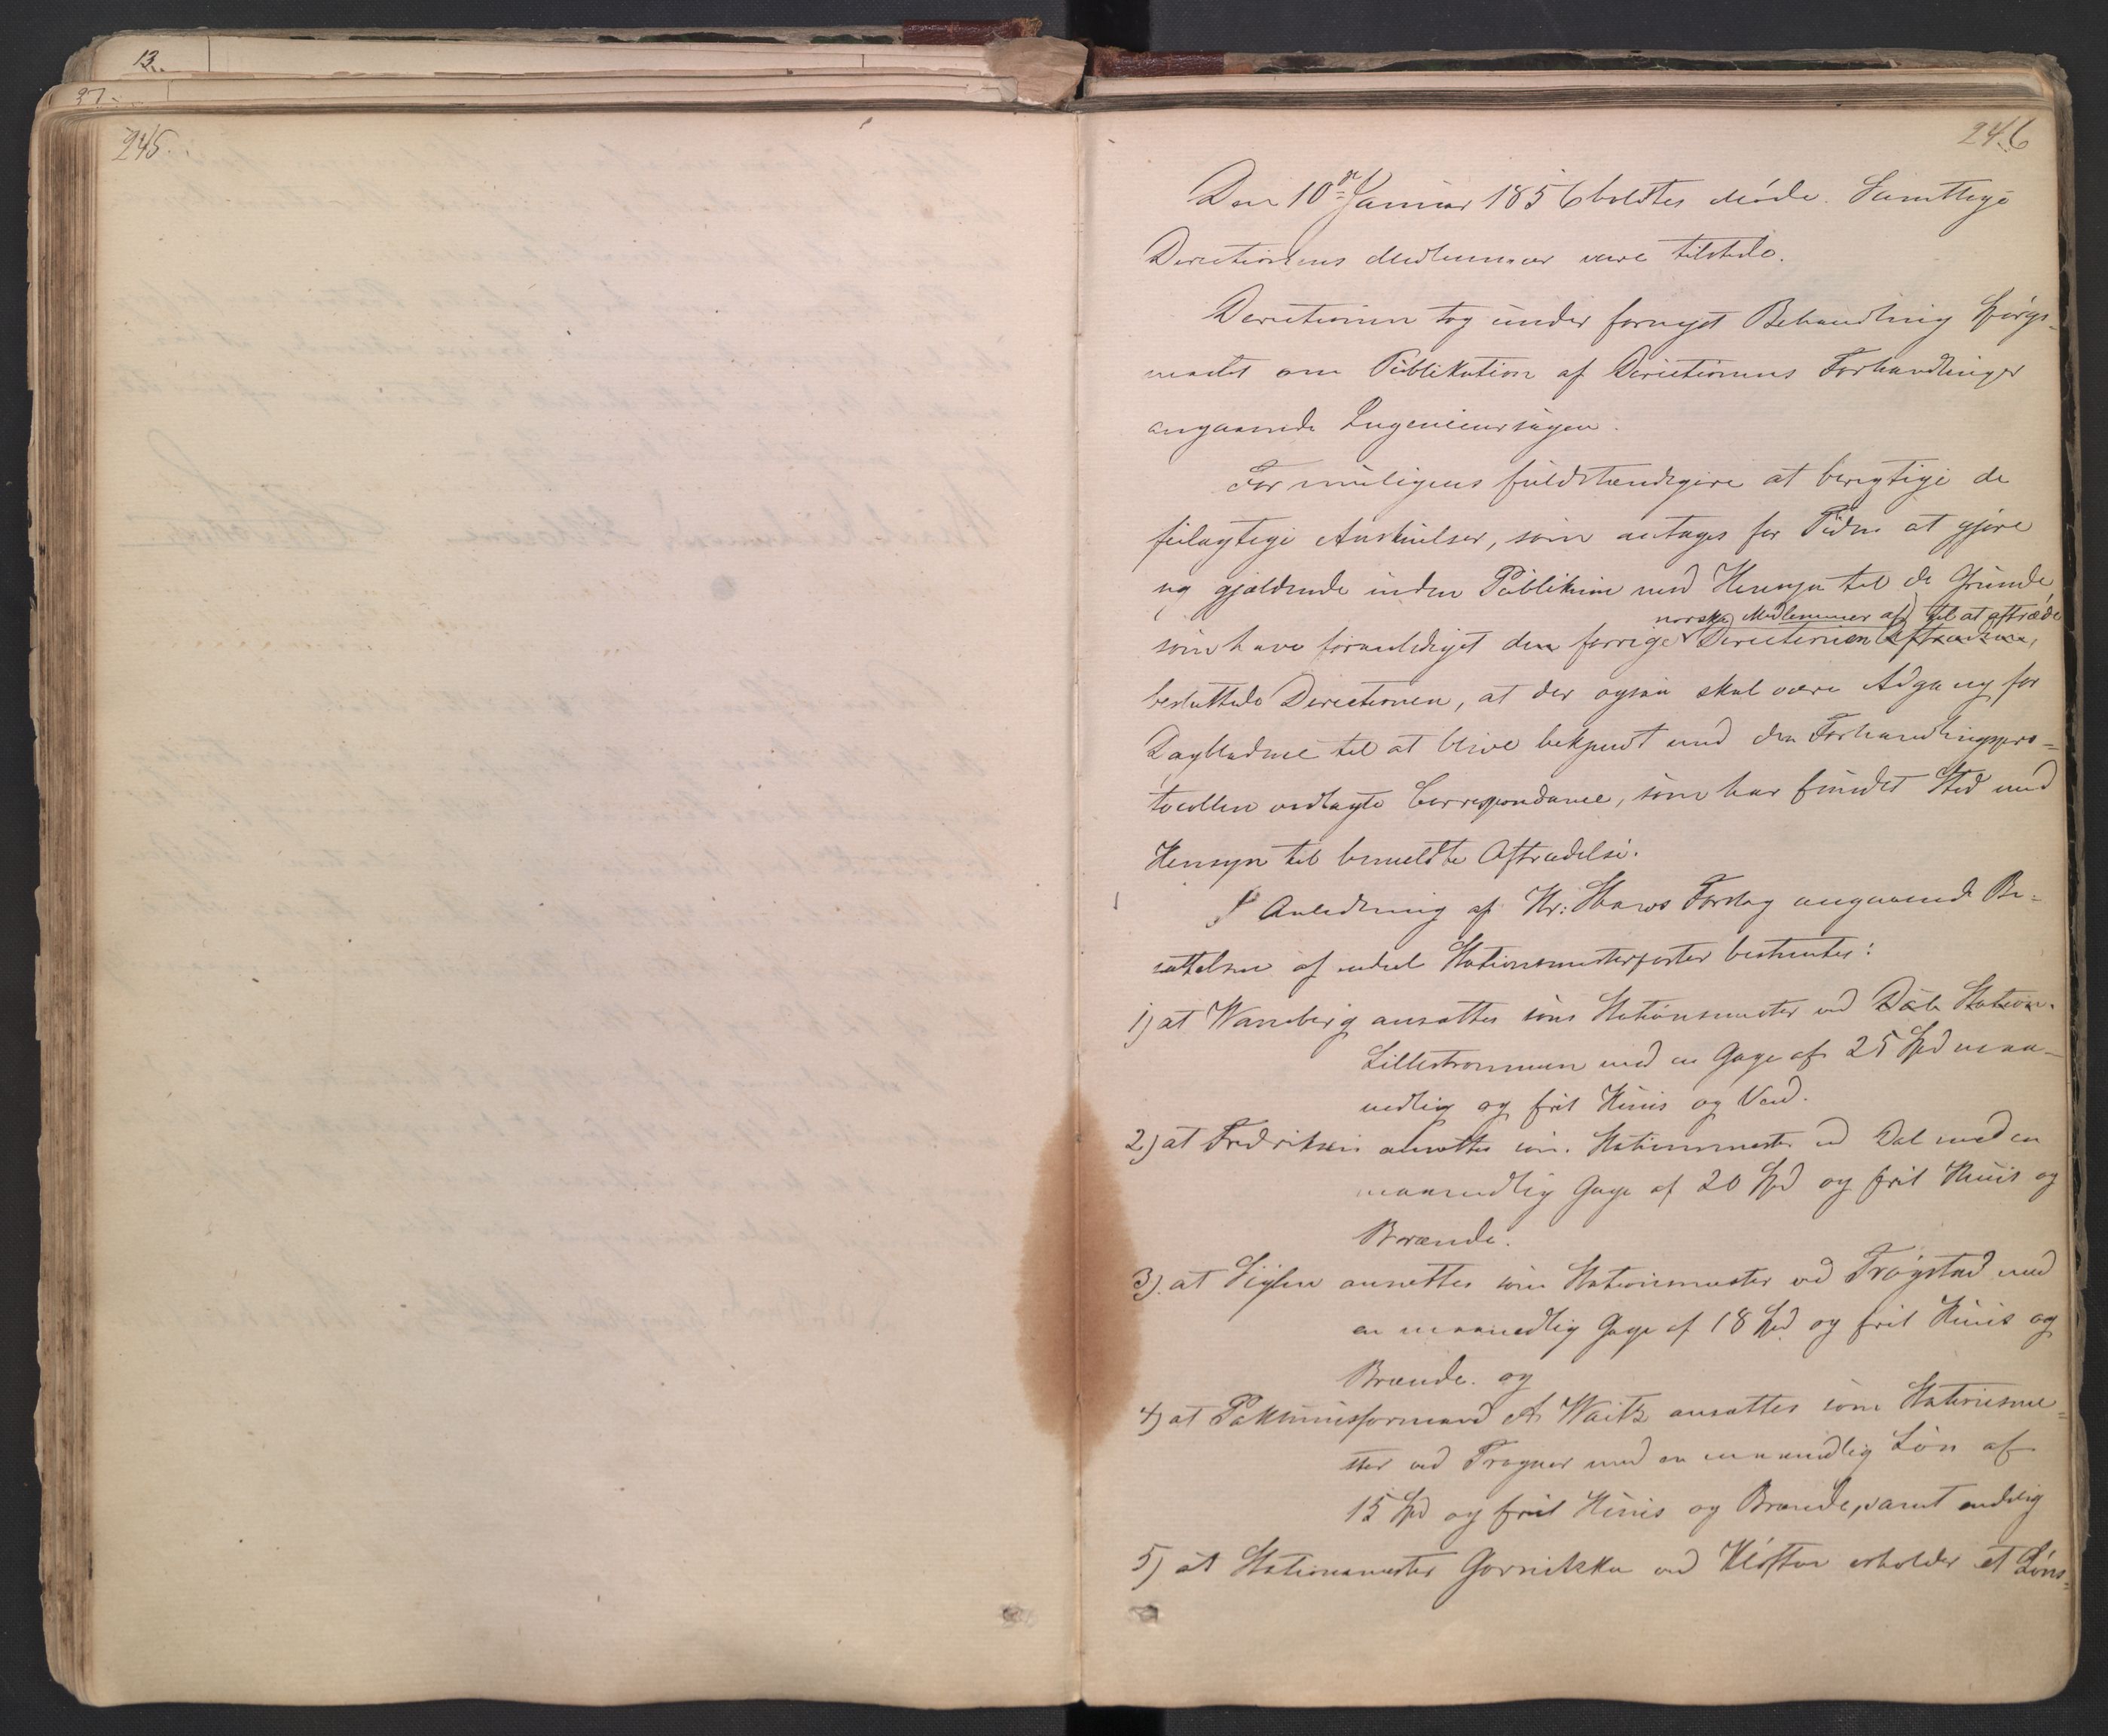 13.
37.
245.
246
Den 10de Januar 1856 holdtes Møde. Samtlige
Directionens Medlemmer vare tilstede.
Directionen tog under fornyet Behandling Spørgs-
maalet om Publikation af Directionens Forhandlinger
angaaende Ingenieursagen.
For muligens fuldstændigere at berigtige de
feilagtige Anskuelser, som antages for Tiden at gjøre
sig gjældende inden Publikum med Hensyn til de Grunde
norske Medlemmer af til at aftræde
som have foranlediget den forrige Directionen Aftrædelse,
besluttede Directionen, at der ogsaa skal være Adgang for
Dagbladene til at blive bekjendt med den Forhandlingspro-
tocollen vedlagte Correspondance, som har fundet Sted med
Hensyn til bemeldte Aftrædelse.
I Anledning af Hr: Shaws Forslag angaaende Be-
sættelsen af endeel Stationsmesterposter bestemtes:
1) at Wamberg ansættes som Stationsmester ved Dals Station.
Lillestrømmen med en Gage af 25 Spd maa-
nedlig og frit Huus og Ved.
2) at Fredriksen ansættes som Stationsmester ved Dal med en
maanedlig Gage af 20 Spd og frit Huus og
Brænde.
3). at ansættes som Stationsmester ved Trøgstad med
en maanedlig Gage af 18 Spd og frit Huus og
Brænde. og
4) at Pakhuusformand A Waitz ansættes som Stationsme-
ster ved Frogner med en maanedlig Løn af
15 Spd og frit Huus og Brænde, samt endelig
5) at Stationsmester Gornitzka ved Kløften erholder et Løns-